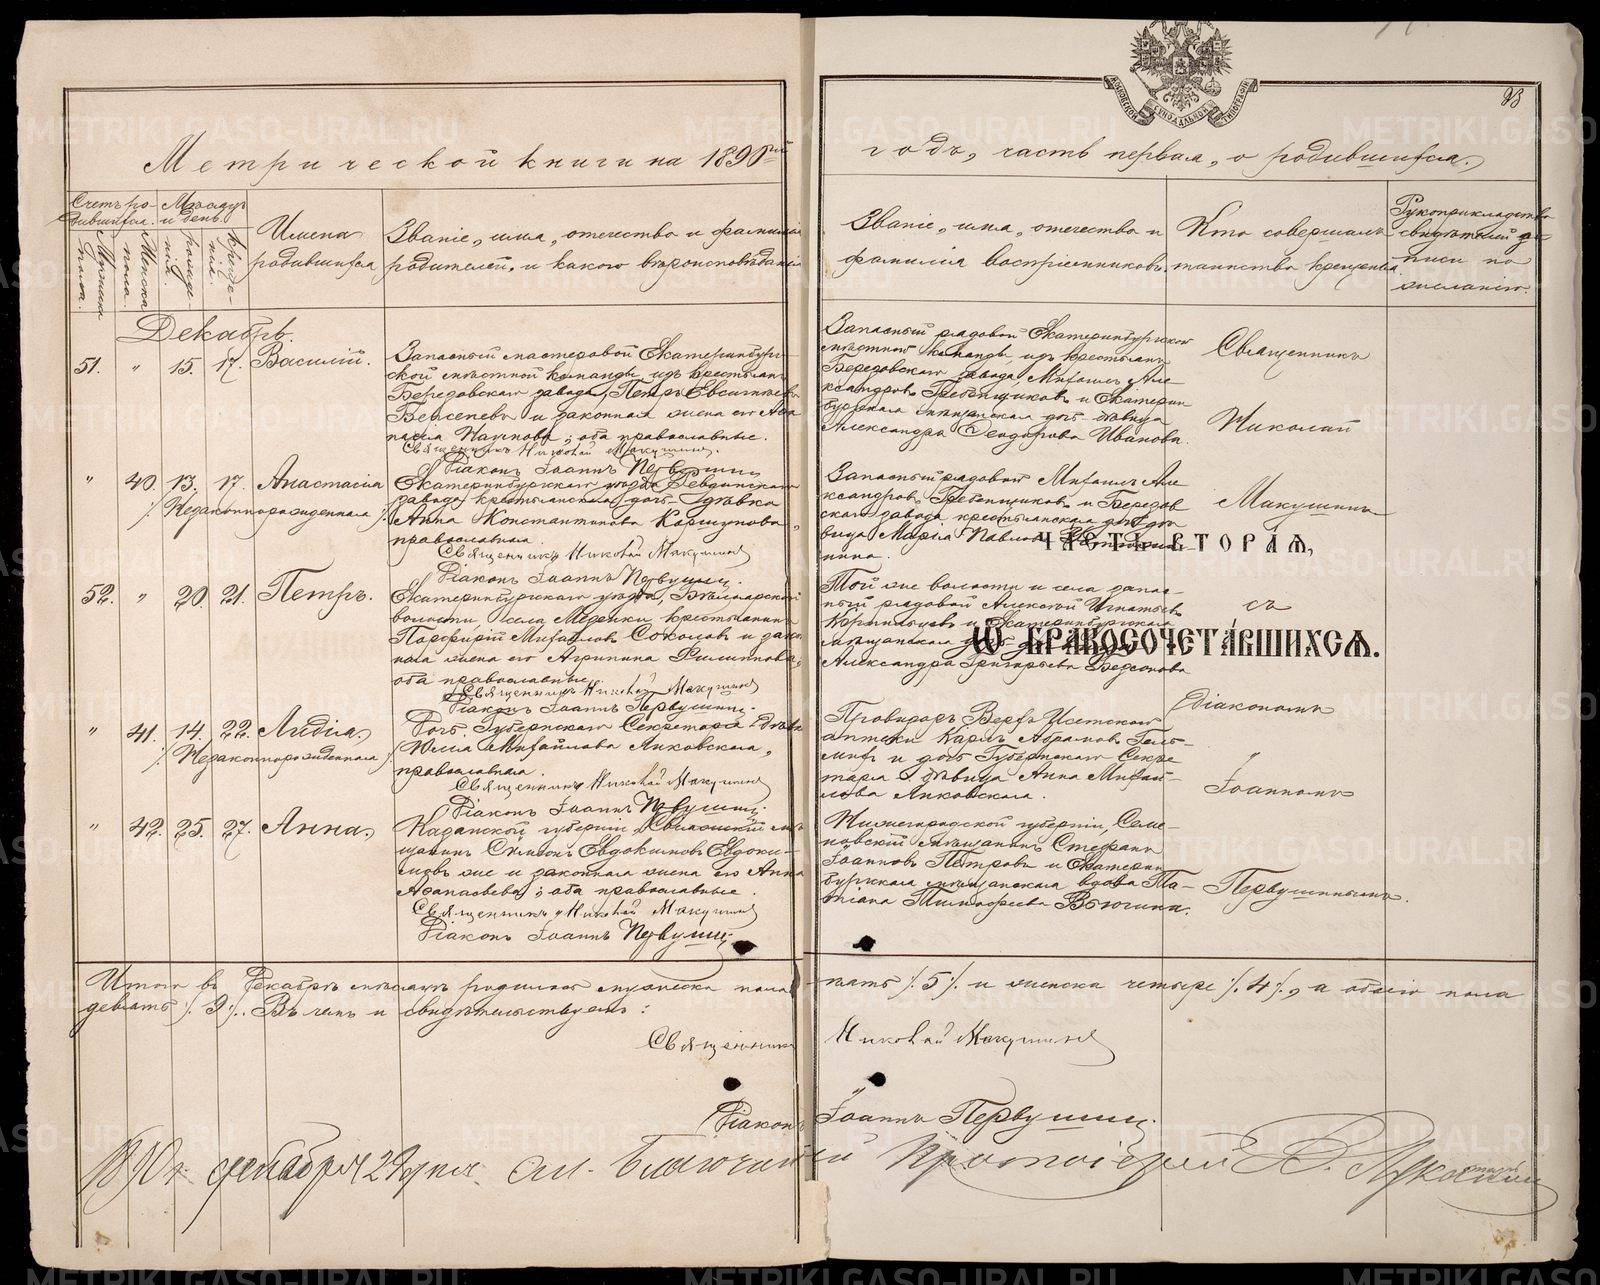 93
Метрической книги на 1890й
годъ, часть первая, о родившихся,
Счетъ ро-
дившихся.
Мѣсяцъ
и день.
Мужеска
пола.
Женска
пола.
рожде-
нія.
креще-
нія.
Имена
родившихся
Званіе, имя, отечество и фамилія
родителей, и какого вѣроисповѣданія
Званіе, имя, отечество и
фамилія воспріемниковъ.
Кто совершалъ
таинство крещенія
Рукоприкладство
свидѣтелей за-
писи по
желанію.
Декабрь.
51. " 15. 17. Василій.
Запасный мастеровой Екатеринбург-
ской мѣстной команды, изъ крестьянъ
Березовскаго завода, Петръ
и законная жена его
Наумова; оба православные.
Священникъ Николай Макушинъ
Діаконъ Іоаннъ Первушинъ
Запасный рядовой Екатеринбургской
мѣстной команды изъ крестьянъ
Березовскаго завода, Михаилъ Але-
ксандровъ Гребенщиковъ и Екатерин-
бургская мѣщанская дочь дѣвица
Александра Ѳеодорова Иванова.
Священникъ
Николай
Макушинъ
съ
Діакономъ
"
Іоанномъ
Первушинымъ.
" 40. 13. 17. Анастасія
/. Незаконнорожденная /.
Екатеринбургскаго уѣзда Ревдинскаго
завода крестьянская дочь дѣвка
Анна Константинова Коршунова,
православная.
Священникъ Николай Макушинъ
Діаконъ Іоаннъ Первушинъ.
Запасный рядовой Михаилъ Але-
ксандровъ Гребенщиковъ и Березов-
скаго завода крестьянская дочь дѣ-
вица Марія Павлова
ЧАСТЬ ВТОРАЯ,
52. " 20. 21. Петръ.
Екатеринбургскаго уѣзда,
волости, села Медянки крестьянинъ
Порфирій Михайловъ Соколовъ и закон-
ная жена его Агрипина Филиппова,
оба православные.
Священникъ Николай Макушинъ
Діаконъ Іоаннъ Первушинъ.
Той же волости и села запас-
ный рядовой Алексѣй Игнатьевъ
и Екатеринбургская
мѣщанская
Александра Григорьева
Ѡ БРАКОСОЧЕТА́ВШИХСЯ.
" 41. 14. 22. Лидія,
/. Незаконнорожденная /.
Дочь Губернскаго Секретаря дѣвка
Юлія Михайлова Янковская,
православная.
Священникъ Николай Макушинъ
Діаконъ Іоаннъ Первушинъ.
Провизоръ Верхъ Исетской
аптеки Карлъ Абрамовъ Гель-
михъ и дочь Губернскаго Секре-
таря дѣвица Анна Михай-
лова Янковская.
" 42. 25. 27. Анна,
Казанской губерніи, Свіяжскій мѣ-
щанинъ Симеонъ Евдокимовъ Евдоки-
мовъ же и законная жена его Анна
Аѳанасьева; оба православные.
Священникъ Николай Макушинъ
Діаконъ Іоаннъ Первушинъ.
Нижегородской губерніи, Семе-
новскій мѣщанинъ Стефанъ
Іоанновъ Петровъ и Екатерин-
бургская мѣщанская вдова Та-
тіана Тимофеева Вьюгина.
Итого въ Декабрѣ мѣсяцѣ родилось мужеска пола пять /.5/. и женска четыре /.4/., а обоего пола
девять /.9/. Въ чемъ и свидѣтельствуемъ:
Священникъ Николай Макушинъ
Діаконъ Іоаннъ Первушинъ.
1890 г. декабря 29 дня. см. Благочинный Протоіерей
METRIKI.GASO-URAL.RU